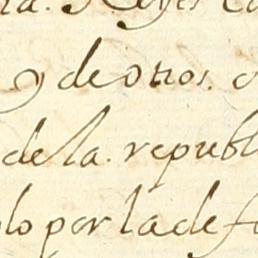 y de otros.
de la. republ
lo por la de f